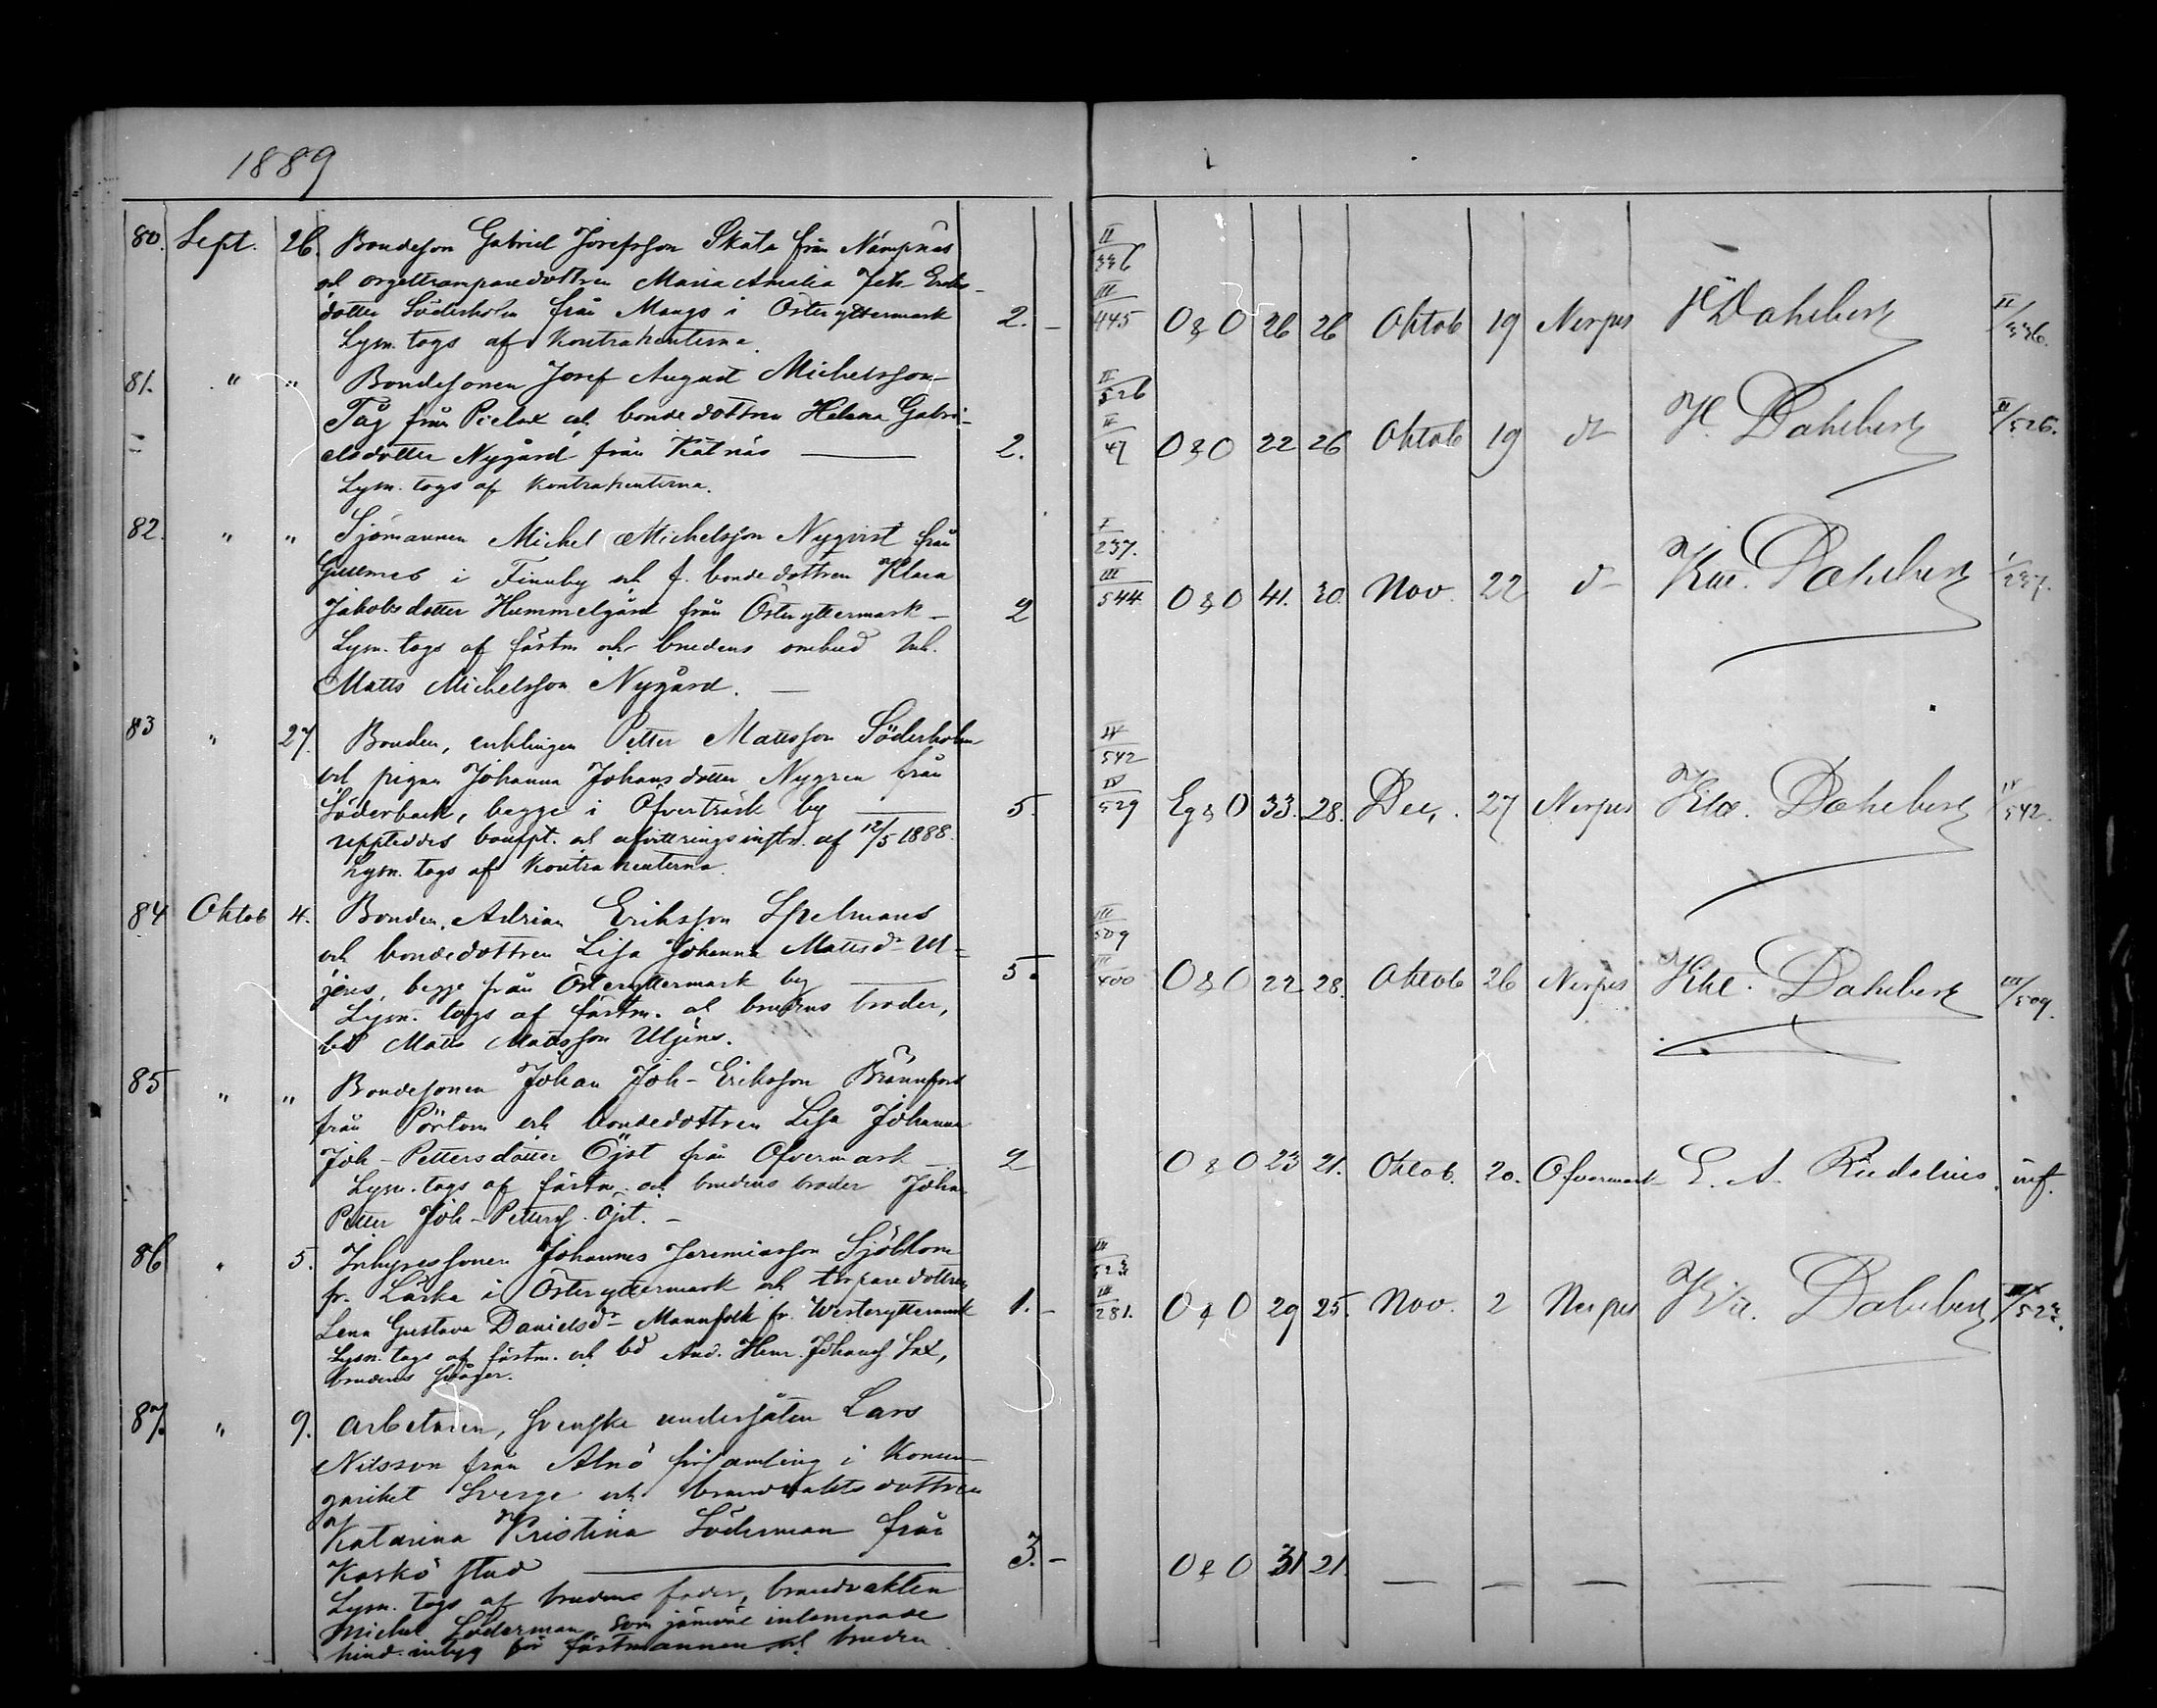 1889
80. Sept. 26. Bondeson Gabriel Josefsson Skata från Nämpnäs
och orgeltramparedottren Maria Amalia Joh-Eriks-
dotter Söderholm från Mangs i Österyttermark 2. –
Lysn. togs af Kontrahenterna.
II/336 III/445 O & O 26 26 Oktob 19 Nerpes Dahlberg II/336.
81. " " Bondesonen Josef August Michelsson
Tåg från Pielax och bondedottren Helena Gabri-
elsdotter Nygård från Kätnäs 2.
Lysn. togs af Kontrahenterna.
II/526 II/47 O & O 22 26 Oktob 19 d:o K. Dahlberg II/526.
82. " " Sjömannen Michel Michelsson Nyqvist från
i Finnby och f. bondedottren Klara
Jakobsdotter Hummelgård från Österyttermark – 2
Lysn. togs af fästm. och brudens ombud
Matts Michelsson Nygård. –
I/237. III/544. O & O 41. 30. Nov. 22 d:o Dahlberg I/237.
83 " 27. Bonden, enklingen Petter Mattsson Söderholm
och pigan Johanna Johansdotter Nygren från
Söderback, begge i Öfverträsk by 5.
uppteddes bouppt. och afvittringsinstr. af 12/5 1888.
Lysn. togs af Kontrahenterna.
IV/542 IV/529 Eg & O 33. 28. Dec. 27 Nerpes Dahlberg IV/542.
84 Oktob 4. Bonden Adrian Eriksson Spelmans
och bondedottren Lisa Johanna Mattsdr Ul-
jens, begge från Österyttermark by 5.
Lysn. togs af fästm. och brudens broder,
bd Matts Mattsson Uljens.
III/509 III/400 O & O 22 28. Oktob 26 Nerpes Dahlberg III/509.
85 " " Bondesonen Johan Joh-Eriksson Brännfors
från Pörtom och bondedottren Lisa Johanna
Joh-Pettersdotter Öjst från Öfvermark – 2
Lysn. togs af fästm. och brudens broder Johan
Petter Joh-Petterss. Öjst. –
O & O 23 21. Oktob. 20. Öfvermark E. A. Rudelius. inf.
86 " 5. Inhysessonen Johannes Jeremiasson Sjöblom
fr. Laska i Österyttermark och torparedottren
Lena Gustava Danielsdr Mannfolk fr. Westeryttermark 1. –
Lysn. togs af fästm. och bd And. Henr. Johanss. Lax,
brudens svåger.
III/523 III/281. O & O 29 25. Nov. 2 Nerpes Dahlberg III/523.
87. " 9. Arbetaren, svenske undersåten Lars
Nilsson från Alnö församling i Konun-
gariket Sverge och brandvaktsdottren
Katarina Kristina Söderman från
Kaskö stad 3. –
Lysn. togs af brudens fader, brandvakten
Michel Söderman, som jämväl inlemnade
hind. intyg för fästmannen och bruden.
O & O 31 21. – – – – – –